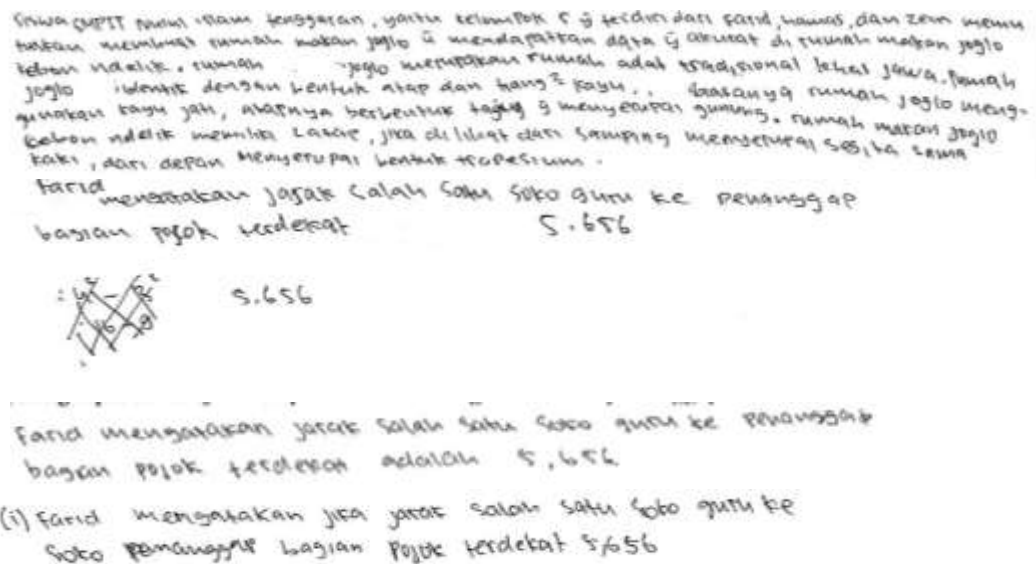 Siswa SMPIT Nurul islam tenggaran, yaitu kelompok 5 yg terdiri dari farid, hamas, dan zein memu
tuskan membuat rumah makan joglo u mendapatkan data yg akurat di rumah makan joglo
kebon ndelik. rumah joglo merupakan rumah adat tradisional lokal jawa. Rumah
joglo identik dengan bentuk atap dan tiang² kayu.. biasanya rumah joglo meng-
gunakan kayu jati, atapnya berbentuk tajug yg menyerupai gunung. rumah makan joglo
kebon ndelik memiliki, jika dilihat dari samping menyerupai sama
kaki, dari depan menyerupai bentuk trapesium.
Farid mengatakan jarak salah satu soko guru ke penanggap
bagian pojok terdekat 5.656
: 4² - 2² 5.656
Farid mengatakan jarak salah satu soko guru ke penanggap
bagian pojok terdekat adalah 5,656
(i) Farid mengatakan jika jarak salah satu soko guru ke
soko penanggap bagian pojok terdekat 5,656